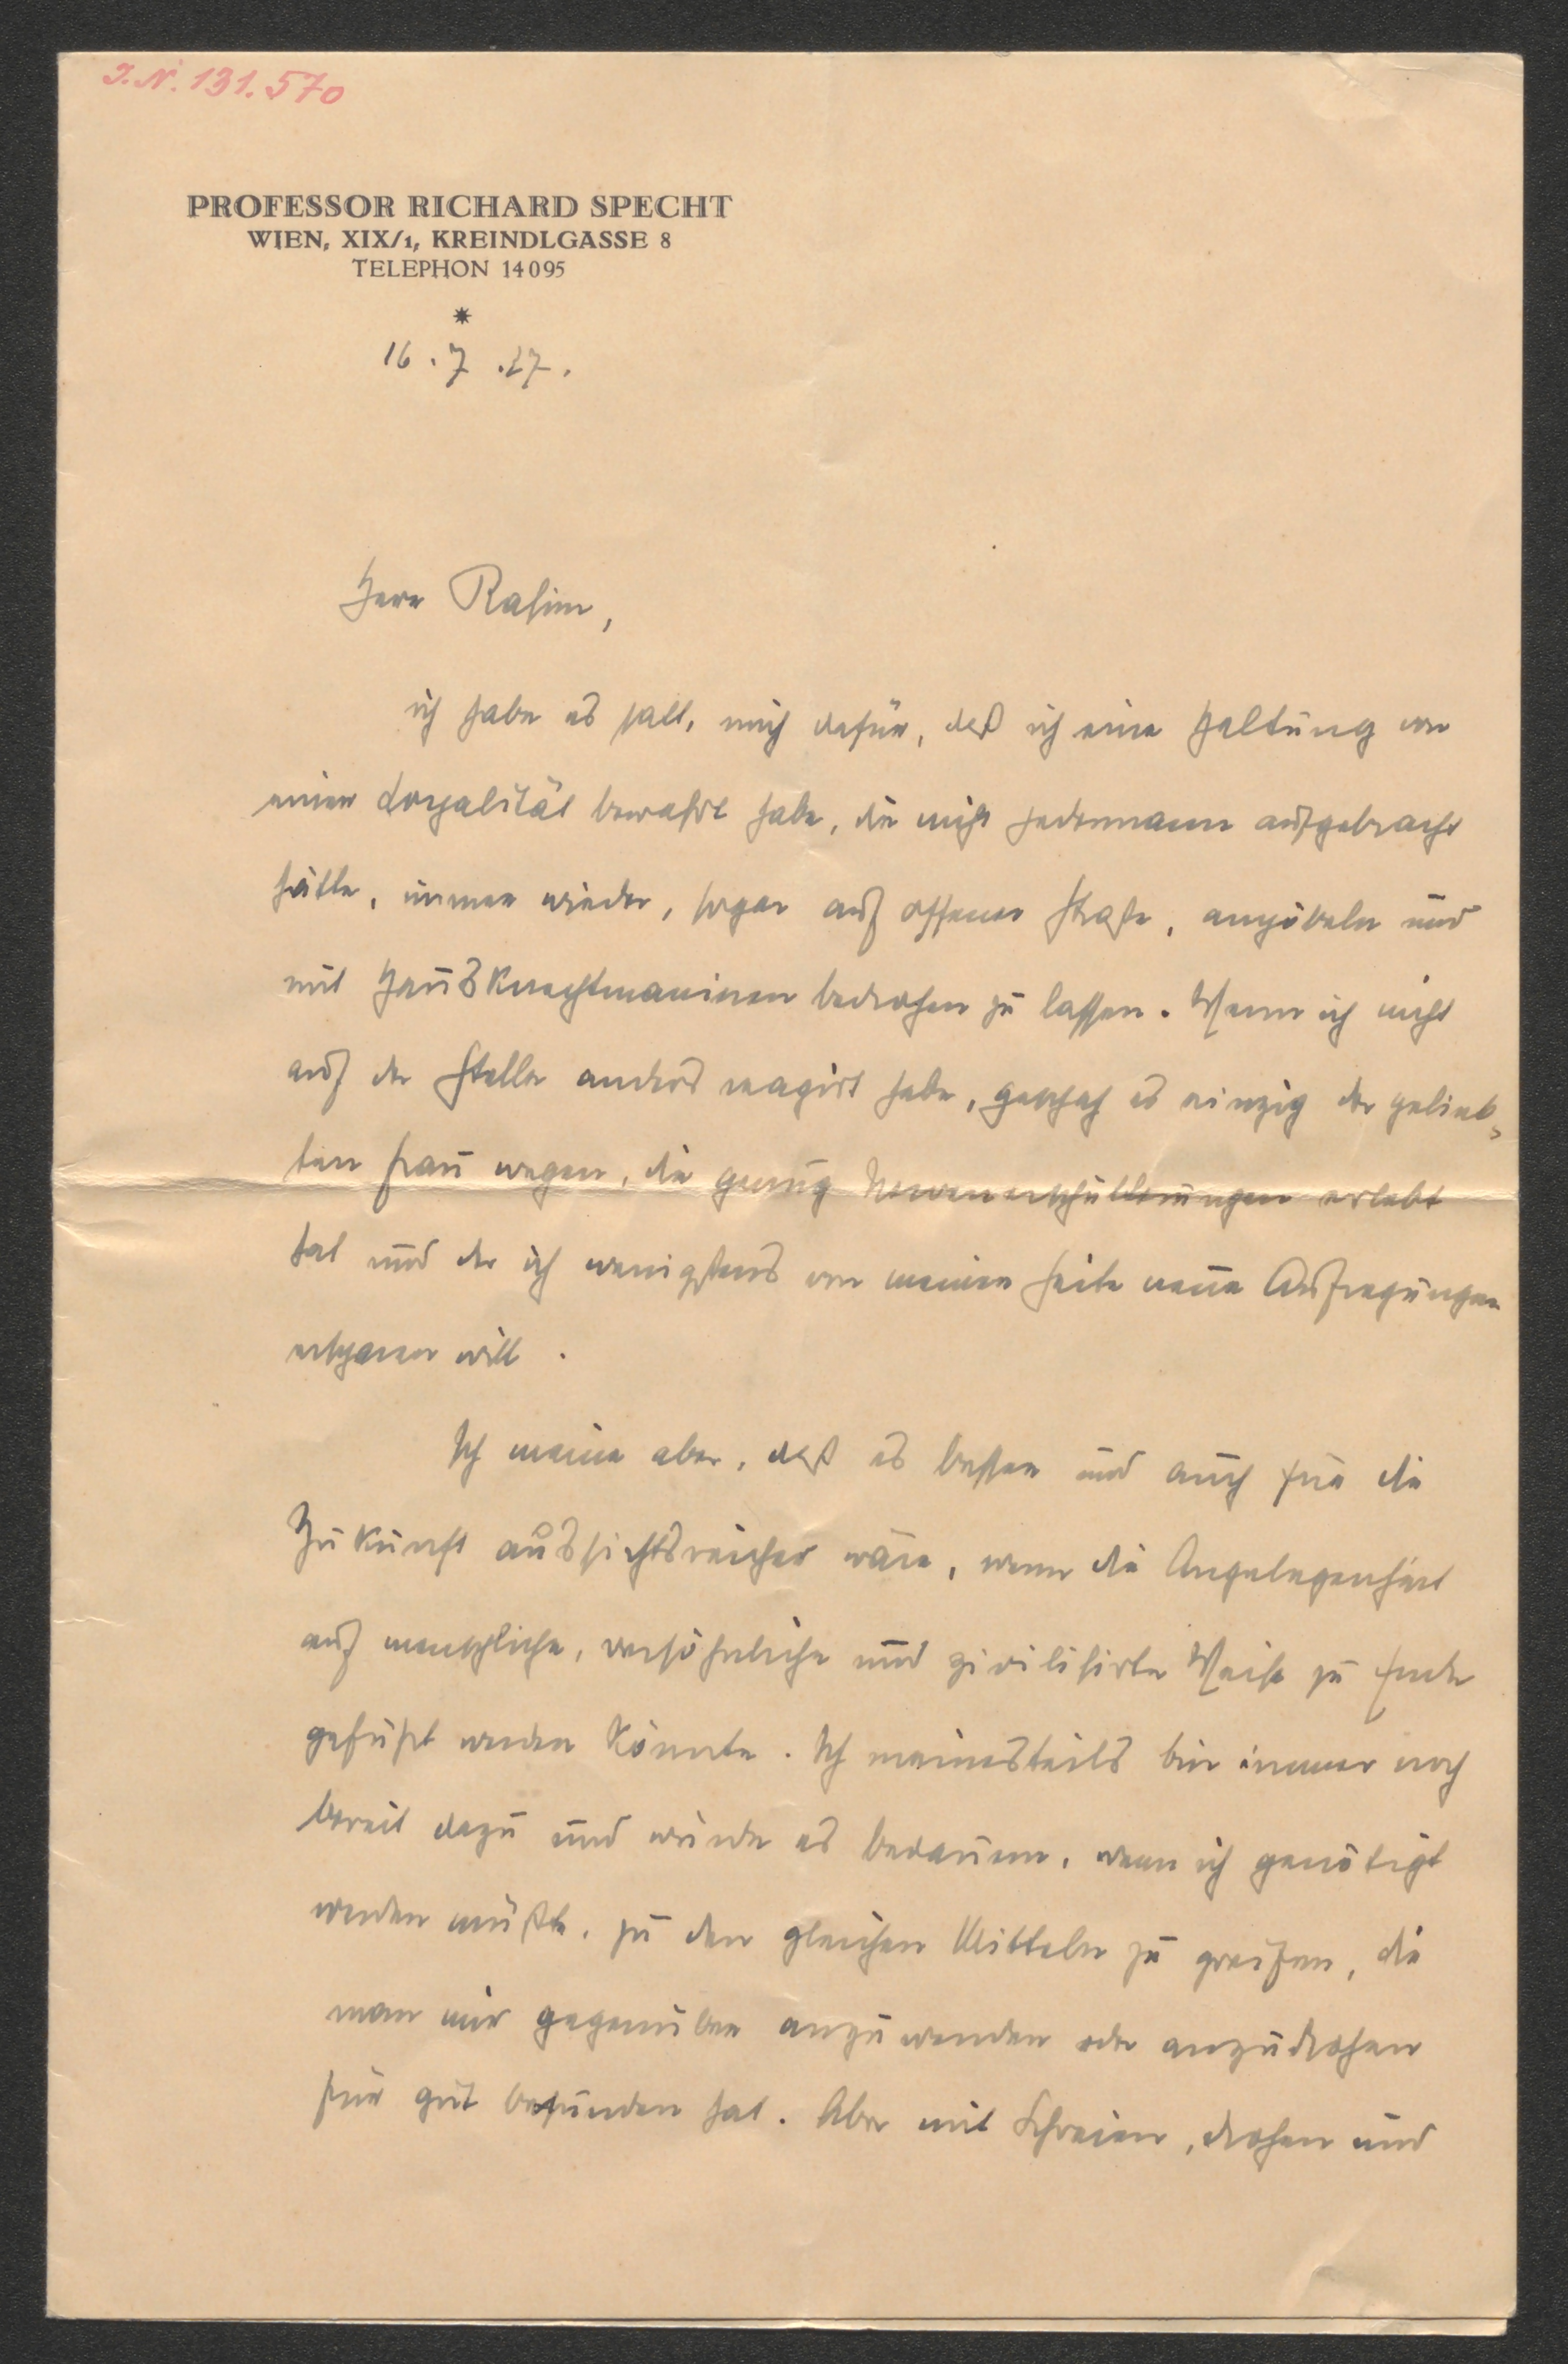 I.N. 131.570
PROFESSOR RICHARD SPECHT
WIEN, XIX/1, KREINDLGASSE 8
TELEPHON 14095
16.7.27.
Herr Rahim,
ich habe es satt, mich dafür, daß ich eine Haltung von
einer Loyalität bewahrt habe, die nicht jedermann aufgebracht
hätte, immer wieder, sogar auf offener Straße, anpöbeln und
mit Hausknechtmanieren bedrohen zu lassen. Wenn ich nicht
auf der Stelle anders reagirt habe, geschah es einzig der gelieb-
ten Frau wegen, die genug Nervenerschütterungen erlebt
hat und der ich wenigstens von meiner Seite neue Aufregungen
ersparen will.
Ich meine aber, daß es besser und auch für die
Zukunft aussichtsreicher wäre, wenn die Angelegenheit
auf menschliche, versöhnliche und zivilisirte Weise zu Ende
geführt werden könnte. Ich meinesteils bin immer noch
bereit dazu und würde es bedauern, wenn ich genötigt
werden müßte, zu den gleichen Mitteln zu greifen, die
man mir gegenüber anzuwenden oder anzudrohen
für gut befunden hat. Aber mit Schreien, drohen und